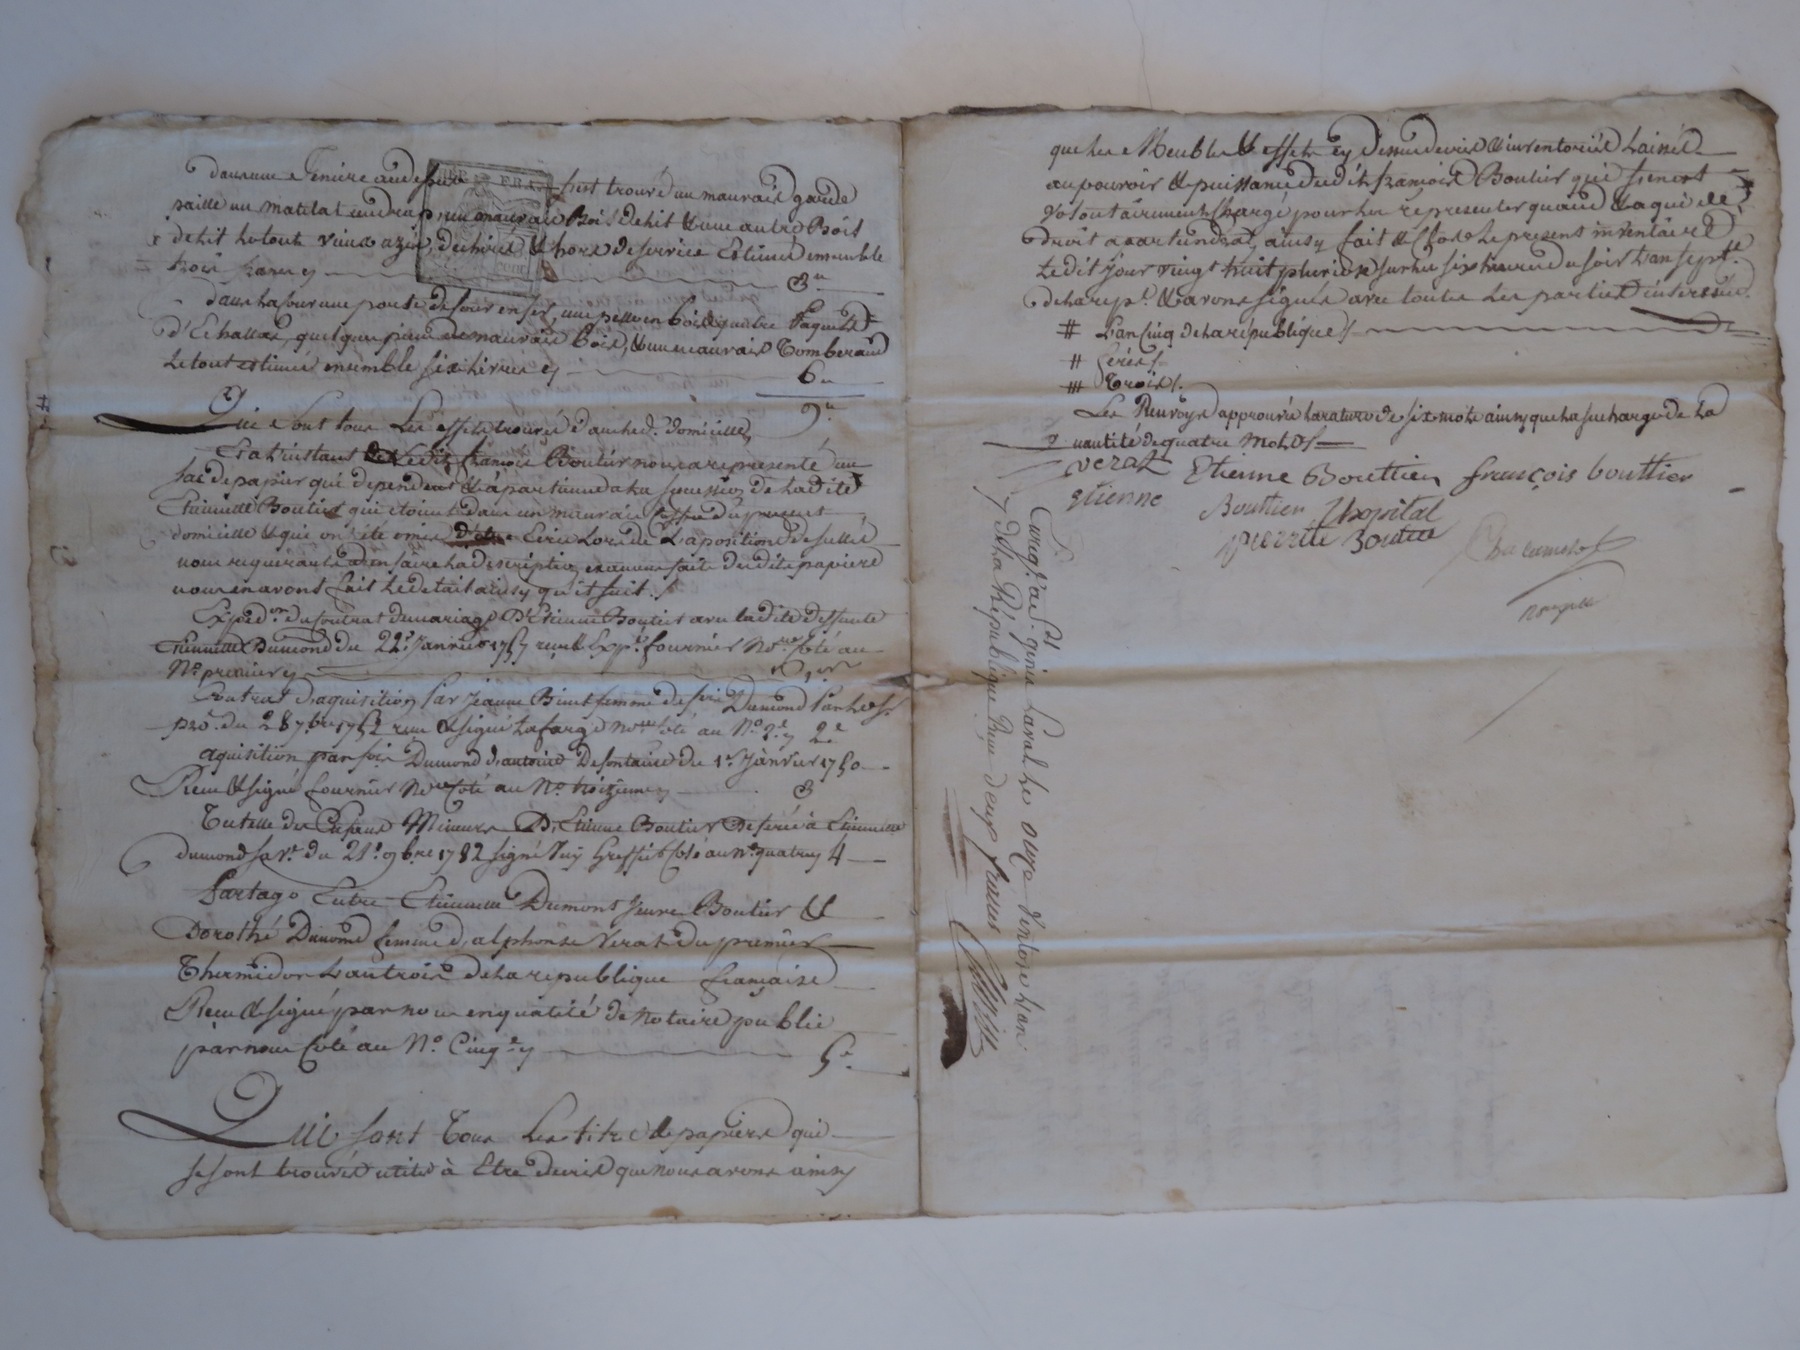 dans une feniere au dessus s'est trouvé un mauvais garde
paille un matelat un drap, un mauvais Bois de lit & une autre Bois
de lit le tout vieux azir, dechirés & hors de service Estimés ensemble
trois francs cy 3
dans la Cour une porte de four en fer, une pelle en bois quatre Paquets
d'Echallas, quelques pieces de mauvais Bois, & un mauvais Tomberaud
le tout estimés ensemble six livres cy 6
9
Qui sont tous Les effets trouvés dans led. domicille,
Et a l'instant Ledit françois Boutier nous a representé un
sac de papier qui dependent & apartienne a la succession de Ladite
Etiennette Boutier qui etoient dans un mauvais coffre du present
domicille & qui ont été omis d'être Lors de L'aposition de scellés
nous requerant d'en faire la description, examen fait desdits papiers
nous en avons fait le detail ainsy qu'il suit.
Exped.on du Contrat de mariage D'Etienne Boutier avec ladite deffunte
Etiennette Dumond du 22e Janvier 1757 reçu & Exp. fournier No.re coté au
No premier cy
Contrat d'aquisition par Jeanne Binet femme de feu Dumond
du 28 7bre 1752 reçu & signé Lafarge No.re coté au No 2e cy 2e
aquisition par feu Dumond d'antoine Defontaine du 1er Janvier 1750
Recu & signé fournier No.re coté au No troizieme cy 3
Tutelle des Enfans Mineurs D'Etienne Boutier Deferée à Etiennette
dumond sa v.e du 21e 9bre 1782 signé Greffier coté au No quatre cy 4
Partage Entre Etiennette Dumont veuve Boutier &
Dorothé Dumond femme d'alphonse Verat du premier
Thermidor L'an trois de la republique française
Recu & signé par nous en qualité de Notaire public
par nous coté au No Cinq.e cy 5e
Qui sont Tous Les titres & papiers qui
se sont trouvés utiles à Etre decris que nous avons ainsy
que les Meubles & effets cy dessus decris & inventoriés Laissés
au pouvoir & puissance dudit françois Boutier qui s'en est
volontairement Chargé pour les representer quand & a qui de
droit apartiendra, ainsy fait & Clos le present inventaire
Ledit jour vingt huit pluviose sur les six heures du soir L'an sept.e
de la rep.e & avons signés avec toutes les parties interessées
# L'an Cinq de la republique /.
# Cerés /.
# Trois /.
Les Renvoys approuvés la rature de six mots ainsy que la surcharge de la
quantité de quatre mots
verat Etienne Bouttier françois bouttier
Etienne Bouttier
pierrete Boutier
Enreg.é a S.t genis Laval le onze ventose L'an
cy de la République Reçu deux francs